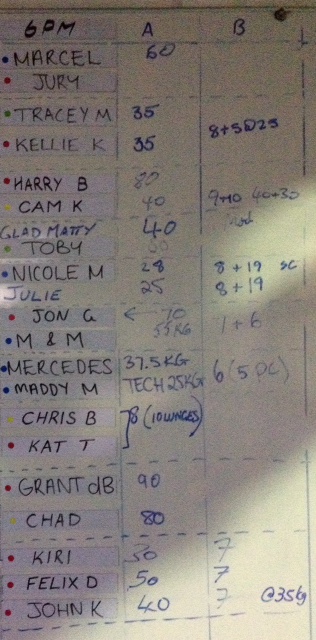 6PM A B
MARCEL 60
JURY
TRACEY M 35
8+5@25
KELLIE K 35
HARRY B 80
CAM K 40 9+10 40+30
GLAD MATTY 40
TOBY 50
NICOLE M 28 8+19 SC
JULIE 25 8+19
JON G ← 70
55KG 1+6
M & M
MERCEDES 37.5KG 6 (5 DC)
MADDY M TECH 25KG
CHRIS B 8 (10 LUNGES)
KAT T
GRANT dB 90
CHAD 80
KIRI 50 7
FELIX D 50 7
JOHN K 40 7 @35kg